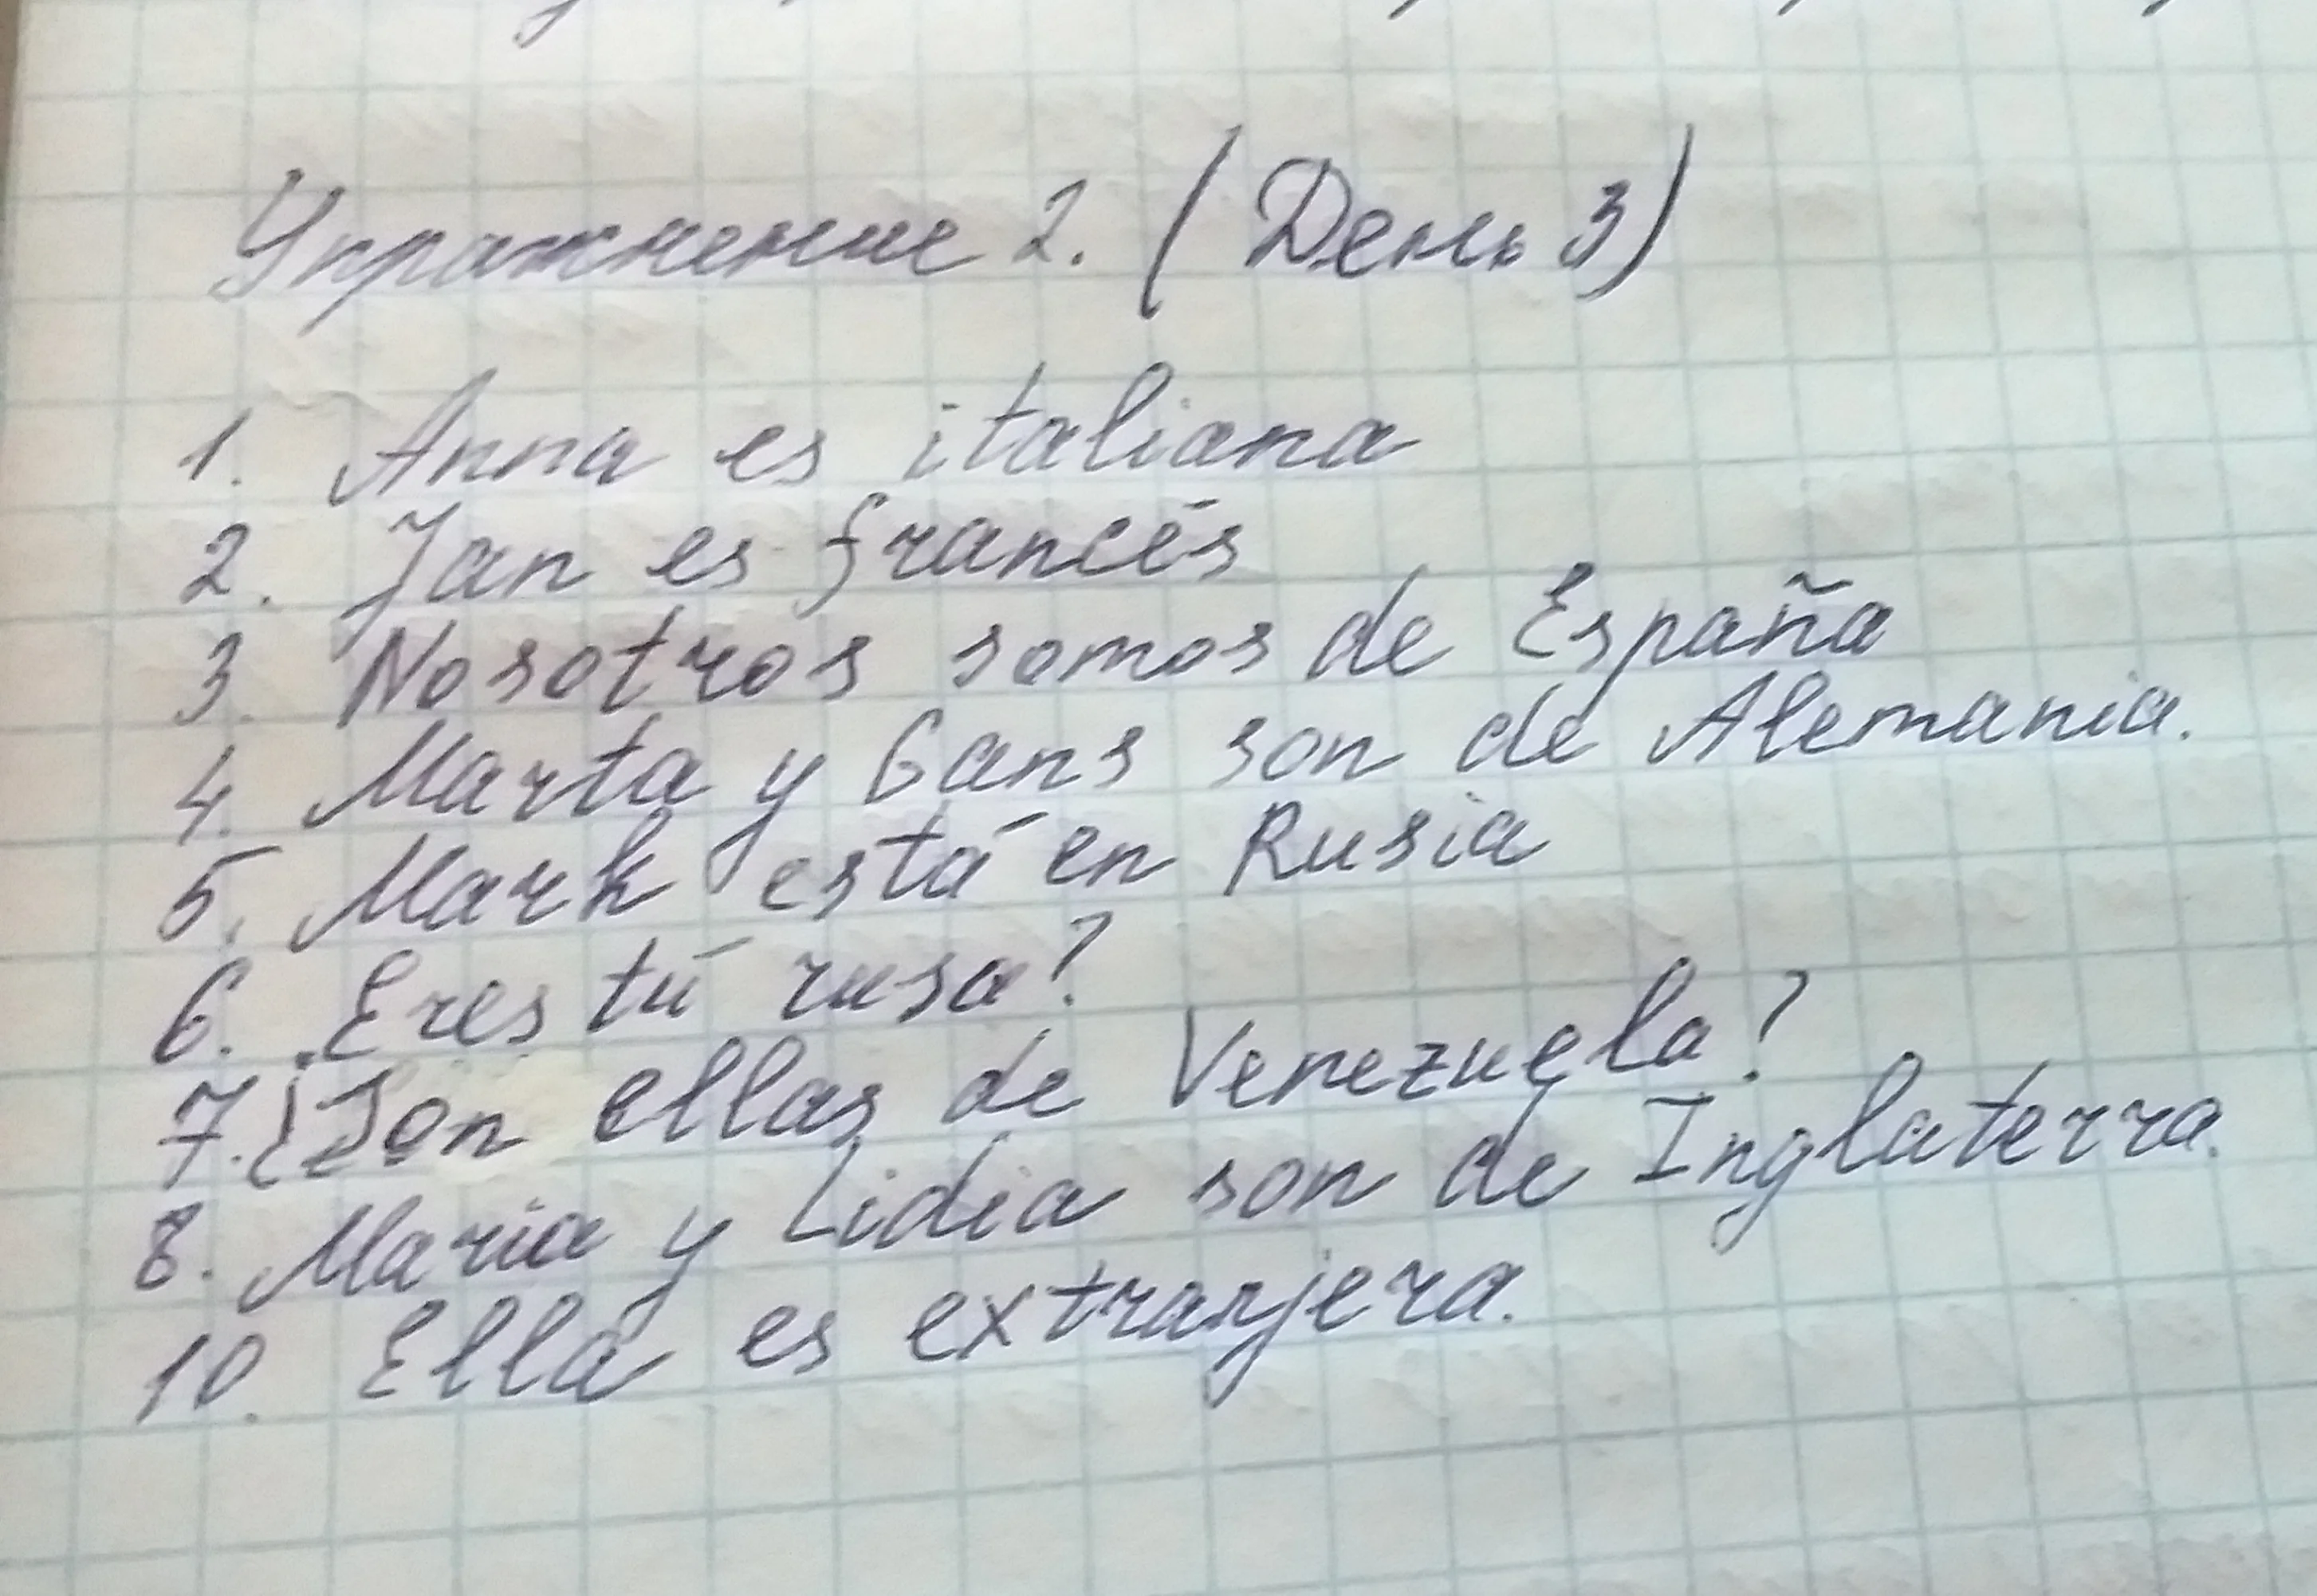 Упражнение 2. (День 3)
1. Anna es italiana
2. Jan es francés
3. Nosotros somos de España
4. Marta y Gans son de Alemania.
5. Mark está en Rusia
6. Eres tú rusa?
7. ¿Son ellas de Venezuela?
8. Maria y Lidia son de Inglaterra.
10. Ella es extranjera.